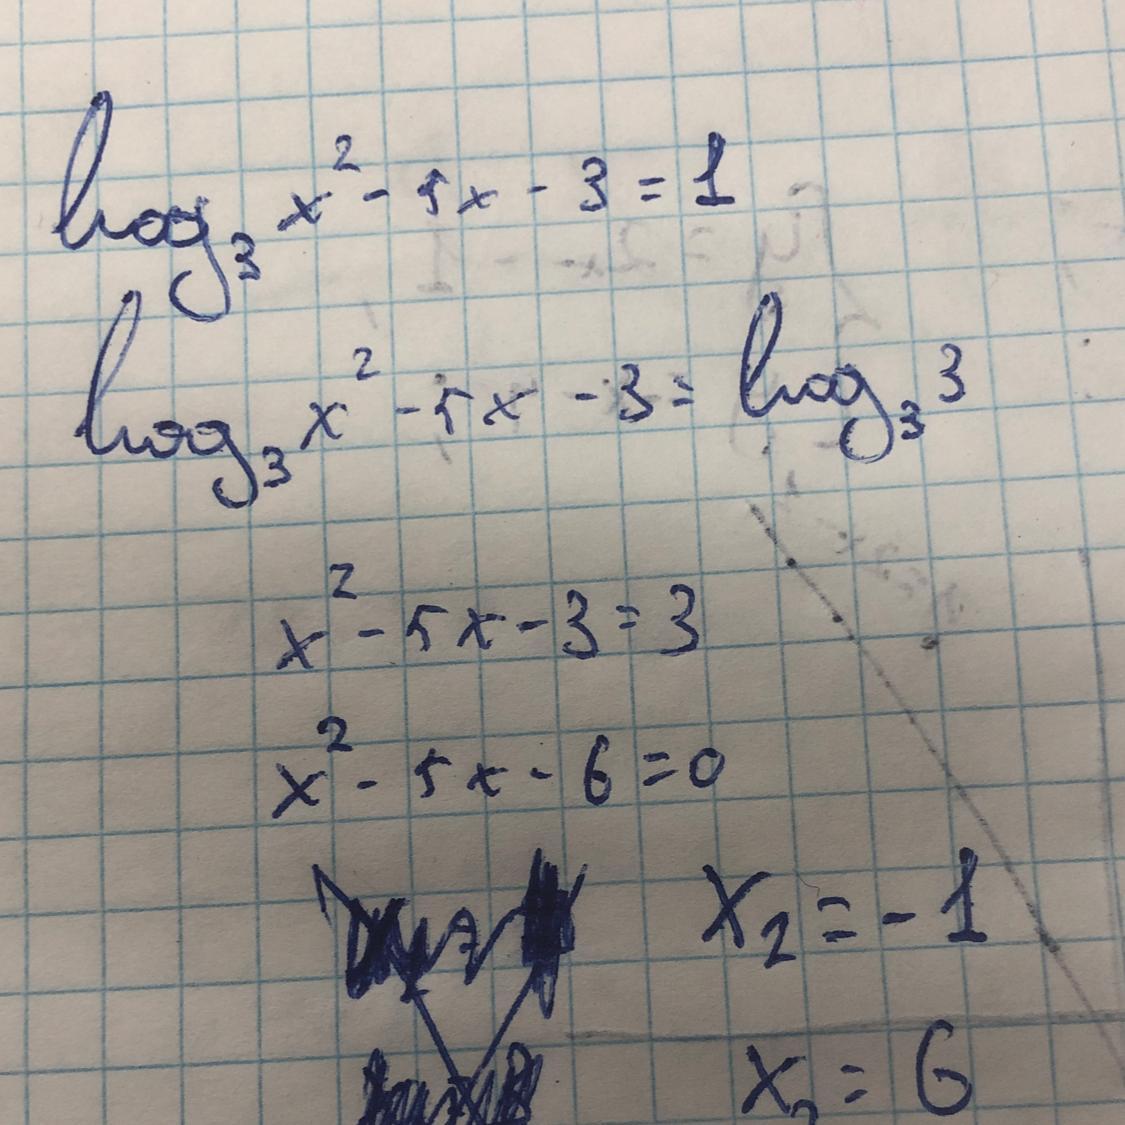 log₃ x² - 5x - 3 = 1
log₃ x² - 5x - 3 = log₃ 3
x² - 5x - 3 = 3
x² - 5x - 6 = 0
x₂ = - 1
x₂ = 6